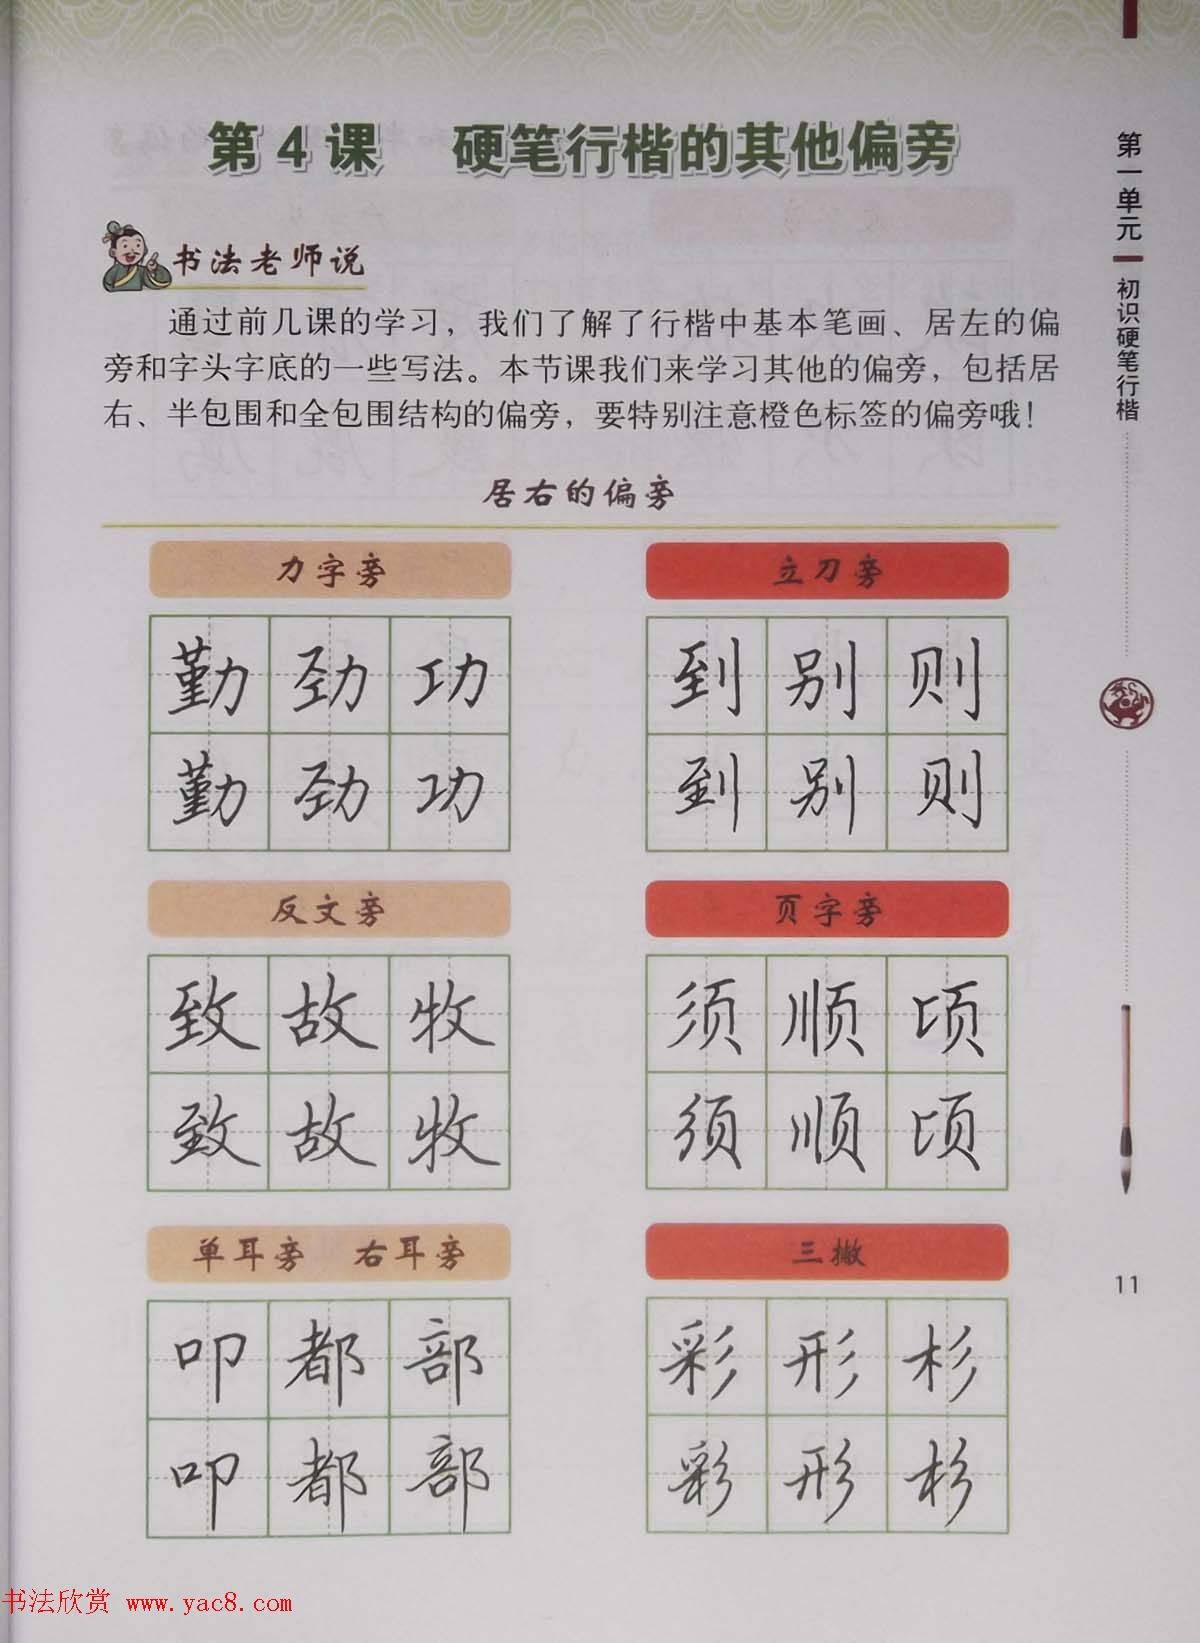 第4课 硬笔行楷的其他偏旁
书法老师说
通过前几课的学习，我们了解了行楷中基本笔画、居左的偏
旁和字头字底的一些写法。本节课我们来学习其他的偏旁，包括居
右、半包围和全包围结构的偏旁，要特别注意橙色标签的偏旁哦！
居右的偏旁
力字旁
勤 劲 功
勤 劲 功
立刀旁
到 别 则
到 别 则
反文旁
致 故 牧
致 故 牧
页字旁
须 顺 顷
须 顺 顷
单耳旁 右耳旁
叩 都 部
叩 都 部
三撇
彩 形 杉
彩 形 杉
第一单元 初识硬笔行楷
11
书法欣赏 www.yac8.com